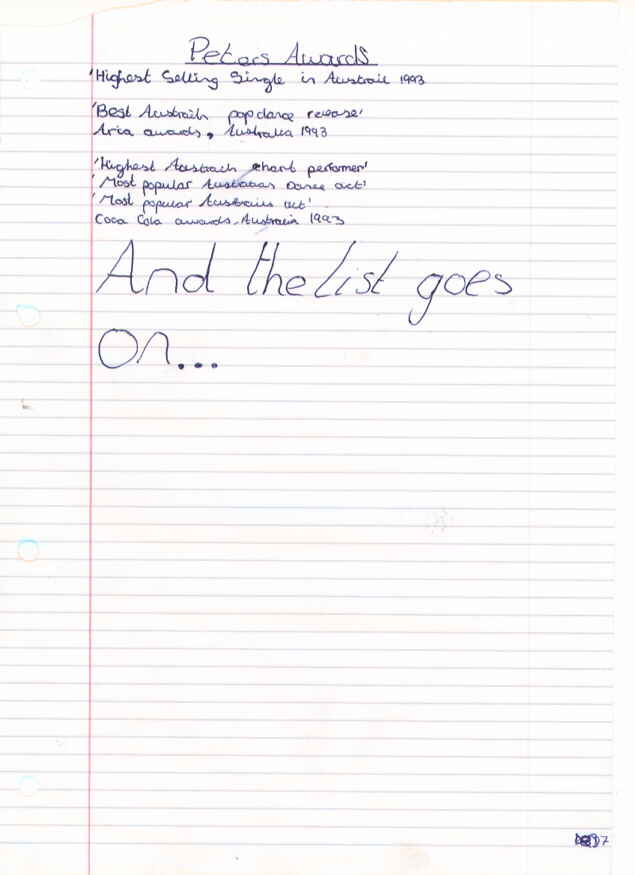 Peters Awards
'Highest Selling Single in Austrail 1993
'Best Australn pop dance release'
Aria awards, Australia 1993
'Highest Austrach chart performer'
'Most popular Australian Dance act'
'Most popular Australia act'
Coca Cola awards. Australia 1993
And the list goes
on...